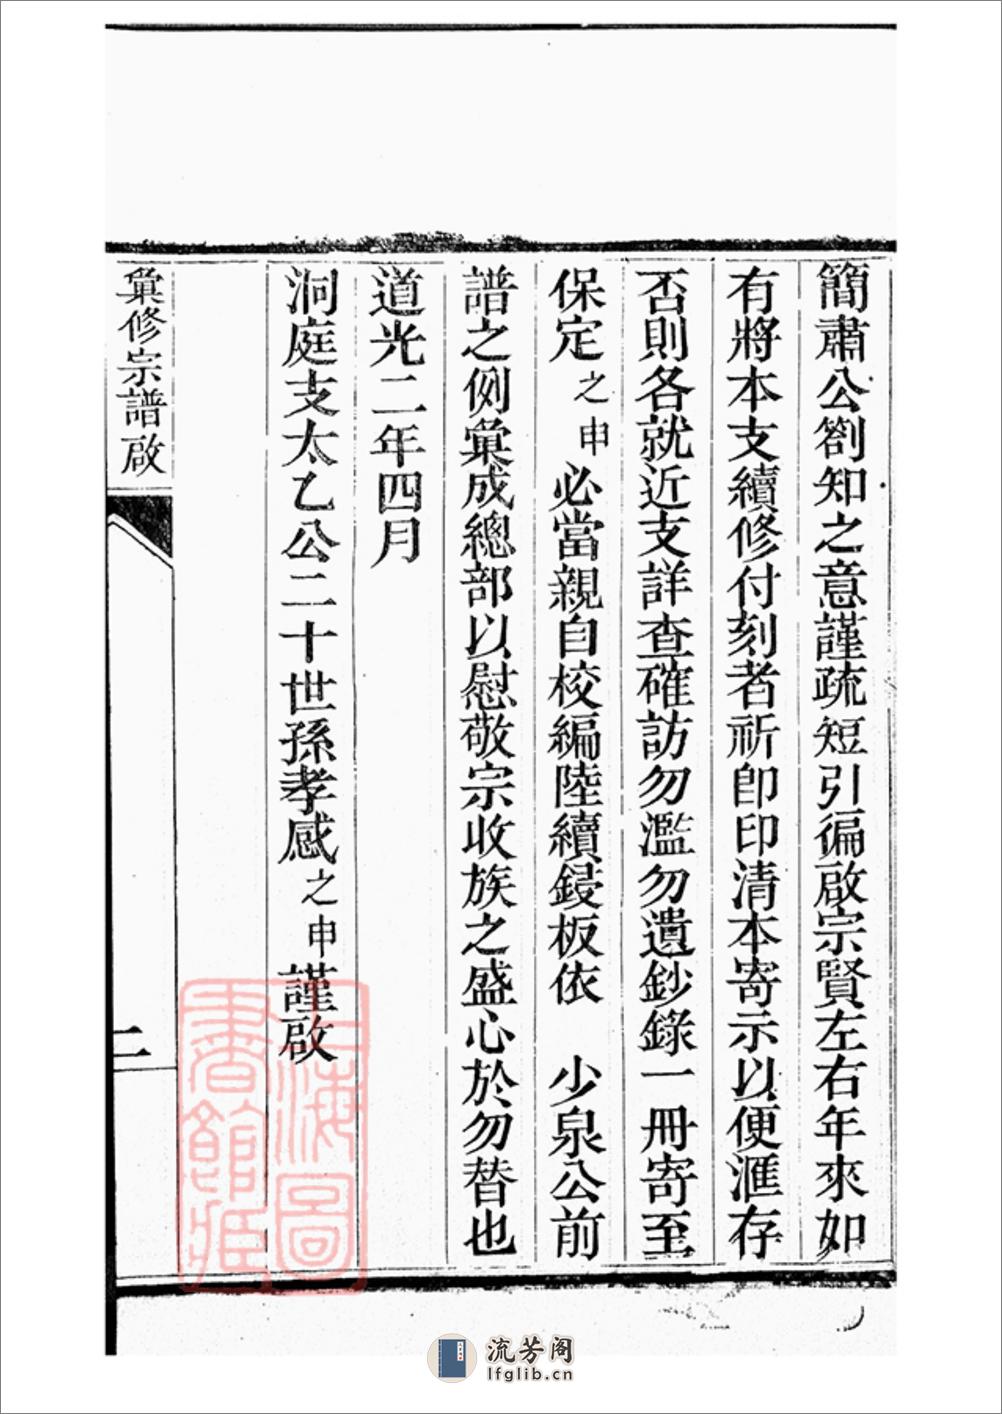 簡肅公劄知之意謹疏短引徧啟宗賢左右年來如
有將本支續修付刻者祈卽印清本寄示以便滙存
否則各就近支詳查確訪勿濫勿遺鈔錄一冊寄至
保定之申必當親自校編陸續鋟板依　少泉公前
譜之例彙成總部以慰敬宗收族之盛心於勿替也
道光二年四月
洞庭支太乙公二十世孫孝感之申謹啟
彙修宗譜啟
二
上海圖
書館藏
流芳阁
lfglib.cn